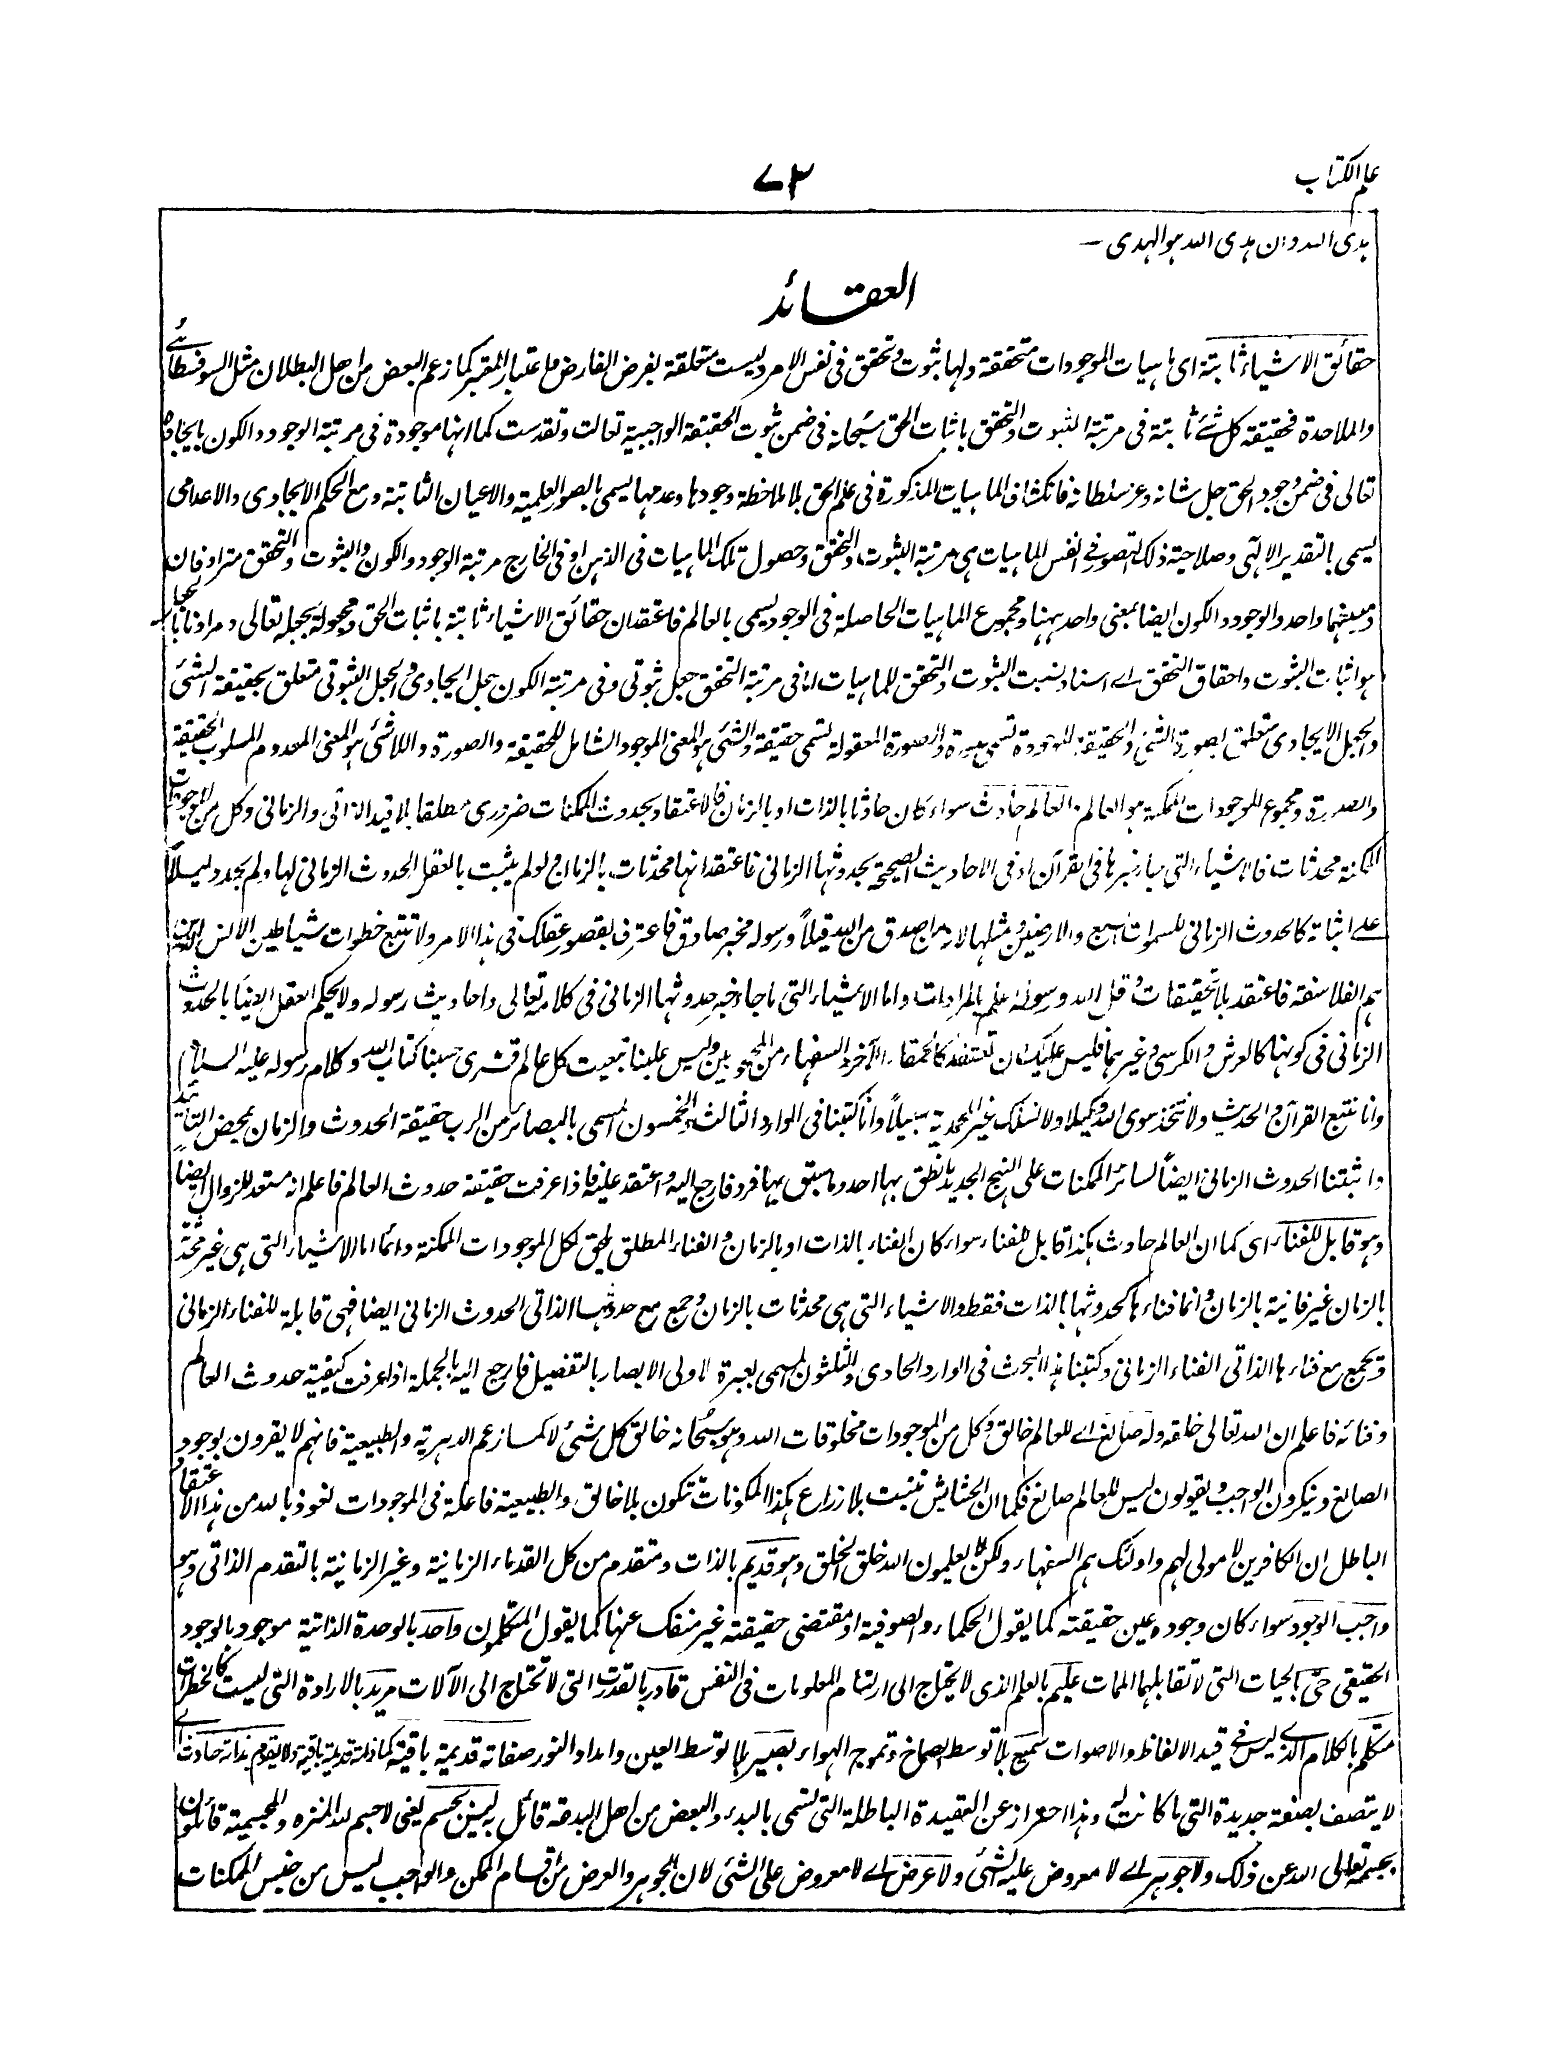 علم الكتاب
٧٣
هدى الله وان هدى الله هو الهدى –
العقائد
حقائق الاشياء ثابتة اى ماهيات الموجودات متحققة ولها ثبوت وتحقق فى نفس الامر وليست متعلقة بفرض الفارض واعتبار المعتبر كما زعم البعض من اهل البطلان مثل السوفسطائے
والملاحدة فحقيقة كل شئے ثابتة فى مرتبة الثبوت والتحقق باثبات الحق سبحانه فى ضمن ثبوت الحقيقة الواجبية تعالت وتقدست كما انها موجودة فى مرتبة الوجود والكون بايجاده
تعالى فى ضمن وجود الحق جل شانه وعز سلطانه فانكشاف الماهيات المذكورة فى علم الحق بلا ملاحظة وجودها وعدمها يسمى بالصور العلمية والاعيان الثابتة ومع الحكم الايجادى والاعدامى
يسمى بالتقدير الالٰهى وصلاحية ذلك التصور فى انفس الماهيات هى مرتبة الثبوت والتحقق وحصول تلك الماهيات فى الذهن او فى الخارج مرتبة الوجود والكون والثبوت والتحقق مترادفان
ومعناهما واحد والوجود والكون ايضا بمعنى واحد ههنا ومجموع الماهيات الحاصلة فى الوجود يسمى بالعالم فاعتقد ان حقائق الاشياء ثابتة باثبات الحق ومجعولة بجعله تعالى ومرادنا بالجعل
هو اثبات الثبوت واحقاق التحقق اے اسناد نسبت الثبوت والتحقق للماهيات اما فى مرتبة التحقق جعل ثبوتى وفى مرتبة الكون جعل ايجادى والجعل الثبوتى متعلق بحقيقة الشئ
والجعل الايجادى متعلق بصورة الشئ والحقيقة الموجودة تسمى صورة والصورة المعقولة تسمى حقيقة والشئ هو المعنى الموجود الشامل للحقيقة والصورة واللاشئ هو المعنى المعدوم المسلوب الحقيقة
والصورة ومجموع الموجودات الممكنة هو العالم والعالم حادث سواء كان حادثا بالذات او بالزمان فالاعتقاد بحدوث الممكنات ضرورى مطلقا بلا قيد الذاتى والزمانى وكل من الموجودات
الممكنة محدثات فالاشياء التى جاء خبرها فى القرآن او فى الاحاديث الصحيحة بحدوثها الزمانى فاعتقد انها محدثات بالزمان ولو لم يثبت بالعقل الحدوث الزمانى لها ولم يجد دليلاً
علے اثباته كالحدوث الزمانى للسموات السبع والارضين ومثلها لانه من اصدق من الله قيلاً ورسوله مخبر صادق فاعترف بقصور عقلك فى هذا الامر ولا تتبع خطوات شياطين الانس الذين
هم الفلاسفة فاعتقد بلا تحقيقات وقل الله ورسوله اعلم بالمرادات واما الاشياء التى ما جاء خبر حدوثها الزمانى فى كلامه تعالى واحاديث رسوله ولا يحكم العقل ايضا بالحدوث
الزمانى فى كونها كالعرش والكرسى وغيرهما فليس عليك ان تعتقد كالحمقاء الآخر والسفهاء من المحجوبين وليس علينا تبعيت كل عالم قشرى حسبنا كتاب الله وكلام رسوله عليه السلام
وانا نتبع القرآن والحديث ولا نتخذ سوى الله وكيلا ولا نسلك غير المحمدية سبيلاً وانا كتبنا فى الوارد الثالث والخمسون المسمى بالبصائر من الرب حقيقة الحدوث والزمان بمحض التائيد
واثبتنا الحدوث الزمانى ايضاً لسائر الممكنات على النهج الجديد ما نطق بها احد وما سبق بها فرد فارجع اليه واعتقد عليه فاذا عرفت حقيقة حدوث العالم فاعلم انه مستعد للزوال ايضاً
وهو قابل للفناء اى كما ان العالم حادث هكذا قابل للفناء سواء كان الفناء بالذات او بالزمان والفناء المطلق يلحق لكل الموجودات الممكنة دائما اما الاشياء التى هى غير محدثة
بالزمان غير فانية بالزمان وانما فناءها كحدوثها بالذات فقط والاشياء التى هى محدثات بالزمان وجمع مع حدوثها الذاتى الحدوث الزمانى ايضا فهى قابلة للفناء الزمانى
ويجمع مع فناءها الذاتى الفناء الزمانى وكتبنا هذا البحث فى الوارد الحادى والثلثون المسمى بعبرة لاولى الابصار بالتفصيل فارجع اليه بالجملة اذا عرفت كيفية حدوث العالم
وفنائه فاعلم ان الله تعالى خلقه وله صانع اے للعالم خالق وكل من الموجودات مخلوقات الله وهو سبحانه خالق كل شئ لا كما زعم الدهرية والطبيعية فانهم لا يقرون بوجود
الصانع وينكرون الواجب ويقولون ليس للعالم صانع فكما ان الحشائش تنبت بلا زراع هكذا المكونات تتكون بلا خالق والطبيعية فاعلة فى الموجودات نعوذ بالله من هذا الاعتقاد
الباطل ان الكافرين لا مولى لهم واولئك هم السفهاء ولكن لا يعلمون الله خلق الخلق وهو قديم بالذات ومتقدم من كل القدماء الزمانية وغير الزمانية بالتقدم الذاتى وهو
واجب الوجود سواء كان وجوده عين حقيقته كما يقول الحكماء والصوفية او مقتضى حقيقته غير منفك عنها كما يقول المتكلمون واحد بالوحدة الذاتية موجود بالوجود
الحقيقى حىّ بالحيات التى لا تقابلها الممات عليم بالعلم الذى لا يحتاج الى ارتسام المعلومات فى النفس قادر بالقدرت التى لا تحتاج الى الآلات مريد بالارادة التى ليست كالخطرات
متكلم بالكلام الذى ليس فى قيد الالفاظ والاصوات سميع بلا توسط الصماخ وتموج الهواء بصير بلا توسط العين وامداد النور صفاته قديمة باقية كما ذاته قديمة باقية ولا يقوم بذاته حادث اے
لا يتصف بصفة جديدة التى ما كانت له وهذا احتراز عن العقيدة الباطلة التى تسمى بالبدء والبعض من اهل البدعة قائل به ليس بجسم يعنى لا جسم لله المنزه والمجسمية قائلون
بجسمه تعالى الله عن ذلك ولا جوهر اے لا معروض عليه لشئ ولا عرض اے لا معروض على الشئ لان الجوهر والعرض من اقسام الممكن والواجب ليس من جنس الممكنات